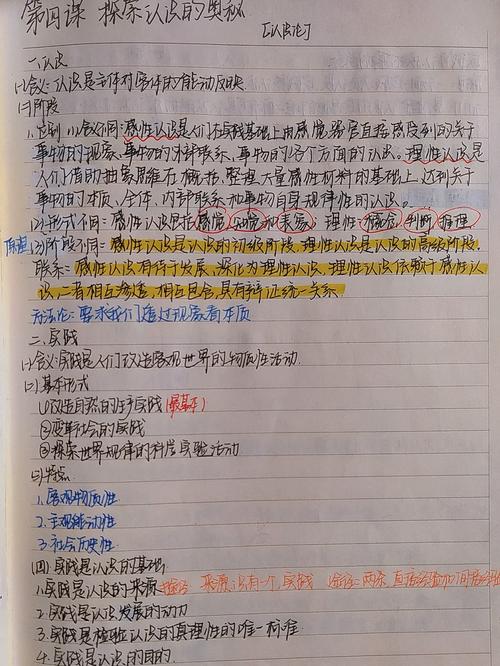 第四课 探索认识的奥秘
[认识论]
一、认识
(一)含义:认识是主体对客体的能动反映
(二)阶段
1.区别 (1)含义不同:感性认识是人们在实践基础上由感觉器官直接感受到的关于
事物的现象、事物的外部联系、事物的各个方面的认识。理性认识是
人们借助抽象思维在概括、整理大量感性材料的基础上,达到关于
事物的本质、全体、内部联系和事物自身规律性的认识。
(2)形式不同:感性认识包括感觉、知觉和表象;理性:概念、判断、推理
原理 (3)阶段不同:感性认识是认识的初级阶段,理性认识是认识的高级阶段
联系:感性认识有待于发展、深化为理性认识,理性认识依赖于感性认
识,二者相互渗透,相互包含,具有辩证统一关系
方法论:要求我们透过现象看本质
二、实践
(一)含义:实践是人们改造客观世界的物质性活动.
(二)基本形式
①改造自然的生产实践(最基本)
②变革社会的实践
③探索世界规律的科学实验活动
(三)特点
1.客观物质性
2.主观能动性
3.社会历史性
(四)实践是认识的基础
1.实践是认识的来源 途径 来源:只有一个,实践 途径:两条,直接经验和间接经验
2.实践是认识发展的动力
3.实践是检验认识的真理性的唯一标准
4.实践是认识的目的.